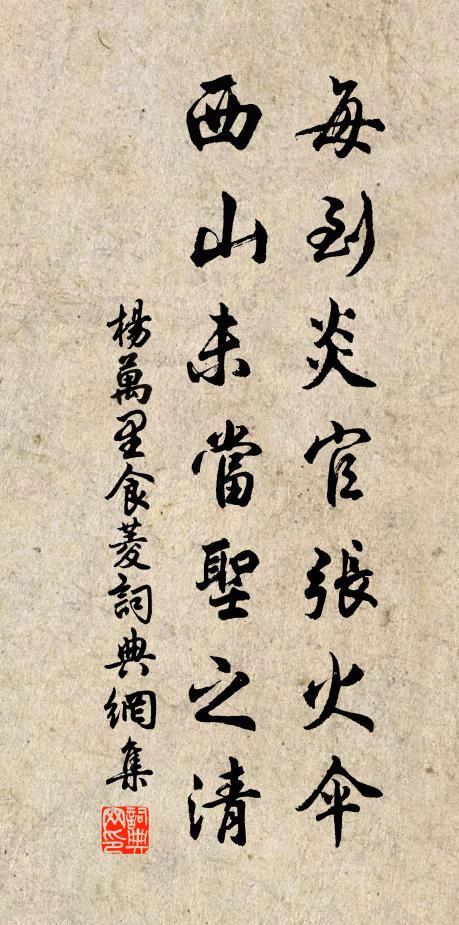 每到炎官張火傘
西山未當聖之清
楊萬里食菱詞典網集
詞典网印